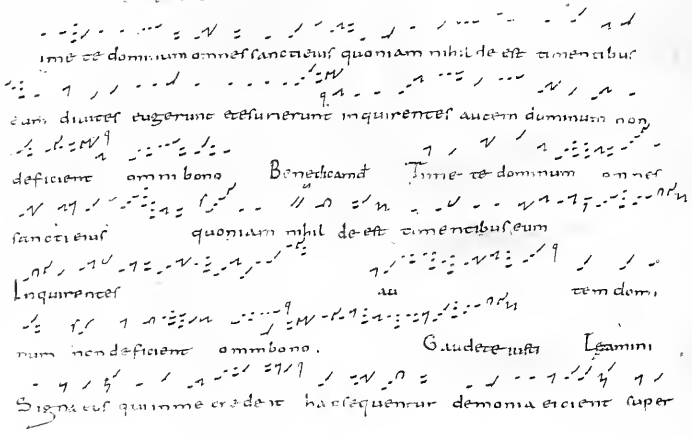 ime te dominum omnes sancti eius quoniam nihil de est timentibus
eum diuites eugerunt et esurierunt inquirentes autem dominum non
deficient omni bono Benedicamd Time te dominum omnes
sancti eius quoniam nihil de est timentibus eum
Inquirentes au tem domi
num non deficient omni bono. Gaudete iusti Letamini
Signa eius qui in me credent haec sequentur demonia eicient super